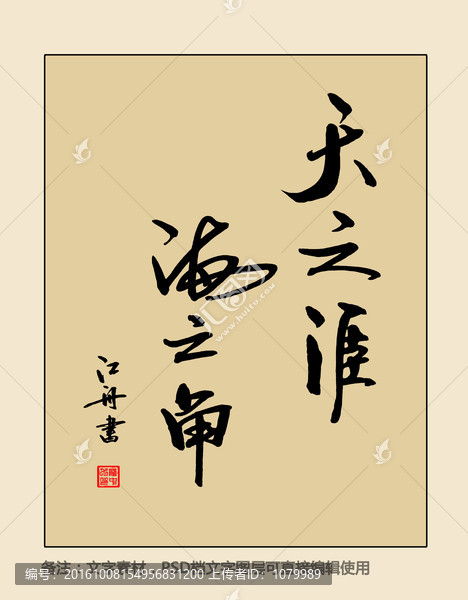 天之涯
海之角
江舟書
备注：文字素材，PSD档文字图层可直接编辑使用
编号：20161008154956831200 上传者ID：1079989
huitu.com